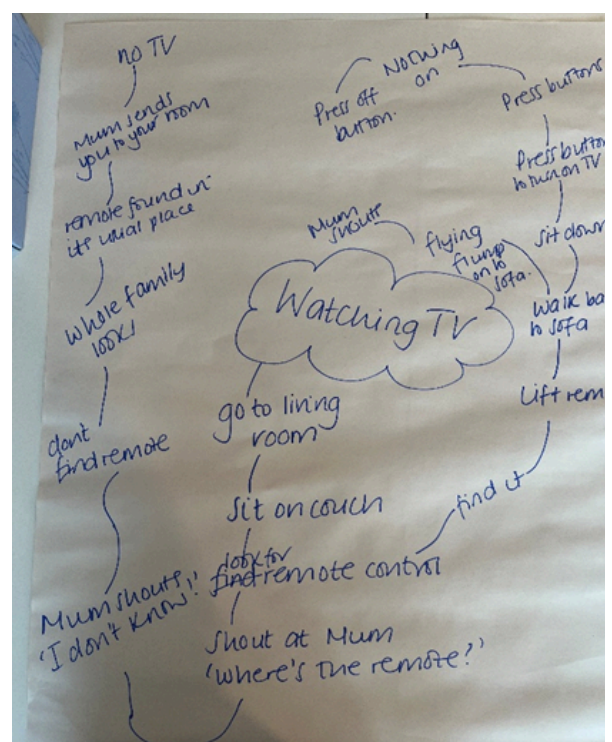 Watching TV
go to living
room
sit on couch
look for
find remote control
shout at Mum
'where's the remote?'
Mum shouts,
'I don't know!'
don't
find remote
whole family
look!
remote found in
its usual place
Mum sends
you to your room
no TV
find it
Lift rem
Walk ba
to sofa
flying
flump
on to
sofa.
Mum
shouts
sit down
Press button
to turn on TV
Press buttons
Nothing
on
Press off
button.